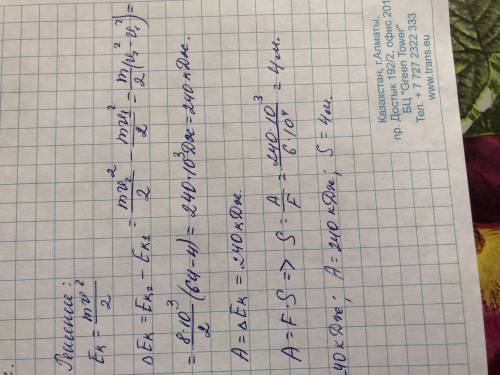 Решение:
Eк = mv²/2
ΔEк = Eк₂ − Eк₂ = mv₂²/2 − mv₁²/2 = m/2 (v₂² − v₁²) =
= 8·10³/2 (64−4) = 240·10³ Дж = 240 кДж.
A = ΔEк = 240 кДж.
A = F·S => S = A/F = 240·10³/6·10⁴ = 4 м.
40 кДж; A = 240 кДж; S = 4 м.
Казахстан, г.Алматы,
пр. Достык 192/2, офис 201
БЦ "Green Tower"
Тел. + 7 727 2322 333
www.trans.eu